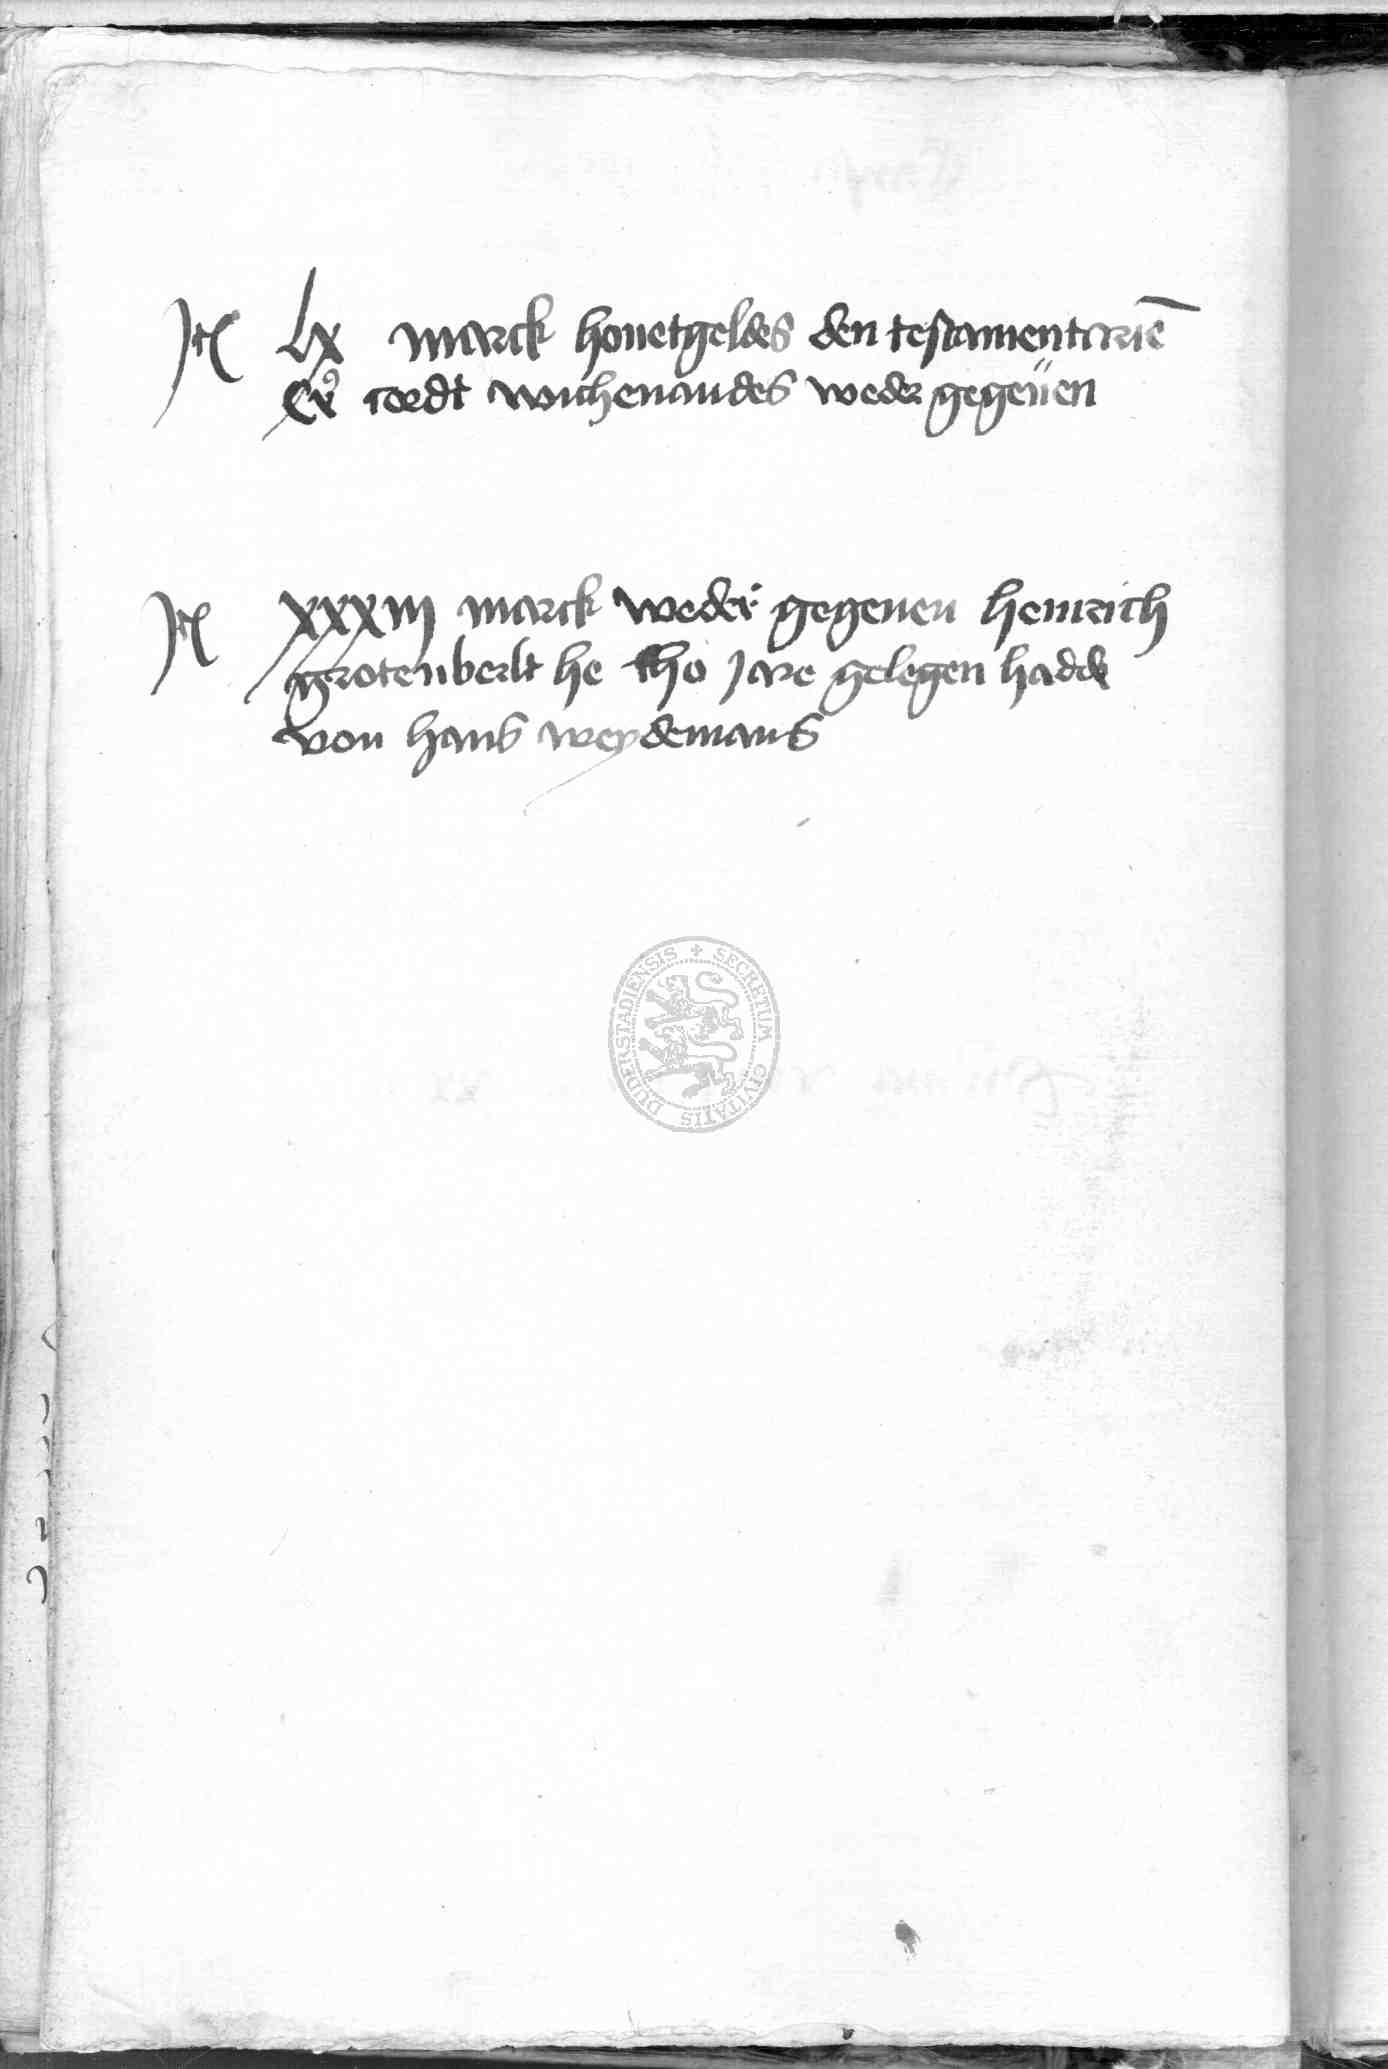 It lx marck houetgeldes den testamentariē
Er cordt wichenandes weder gegeüen
It xxxiij marck weder gegeuen heinrich
grotenberlt he tho jare gelegen hadde
von hans weydemans
SECRETUM CIVITATIS DUDERSTADIENSIS